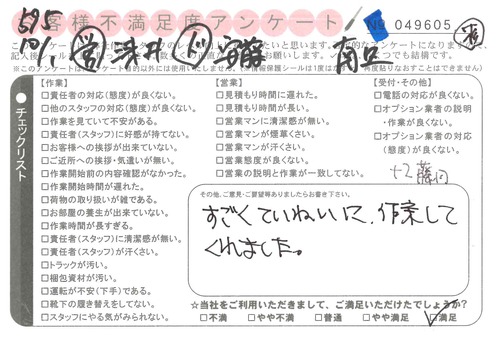 お客様不満足度アンケート
№ 049605
チェックリスト
【作業】
□責任者の対応(態度)が良くない。
□他のスタッフの対応(態度)が良くない。
□作業を見ていて不安がある。
□責任者(スタッフ)に好感が持てない。
□お客様への挨拶が出来ていない。
□ご近所への挨拶・気遣いが無い。
□作業開始前の内容確認がなかった。
□作業開始時間が遅れた。
□荷物の取り扱いが雑である。
□お部屋の養生が出来ていない。
□作業時間が長すぎる。
□責任者(スタッフ)に清潔感が無い。
□責任者(スタッフ)が汗くさい。
□トラックが汚い。
□梱包資材が汚い。
□運転が不安(下手)である。
□靴下の履き替えをしてない。
□スタッフにやる気がみられない。
【営業】
□見積もり時間に遅れた。
□見積もり時間が長い。
□営業マンに清潔感が無い。
□営業マンが煙草くさい。
□営業マンが汗くさい。
□営業態度が良くない。
□営業の説明と作業が一致してない。
【受付・その他】
□電話の対応が良くない。
□オプション業者の説明
・作業が良くない。
□オプション業者の対応
(態度)が良くない。
その他、ご意見・ご要望等ありましたらお書き下さい。
すごくていねいに、作業して
くれました。
☆当社をご利用いただきまして、ご満足いただけたでしょうか?
□不満 □やや不満 □普通 □やや満足 □満足